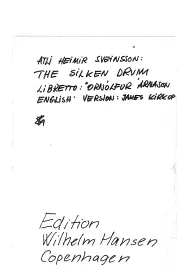 ATLI HEIMIR SVEINSSON:
THE SILKEN DRUM
LIBRETTO: ÖRNÓLFUR ÁRNASON
ENGLISH VERSION: JAMES KIRKUP
Edition
Wilhelm Hansen
Copenhagen